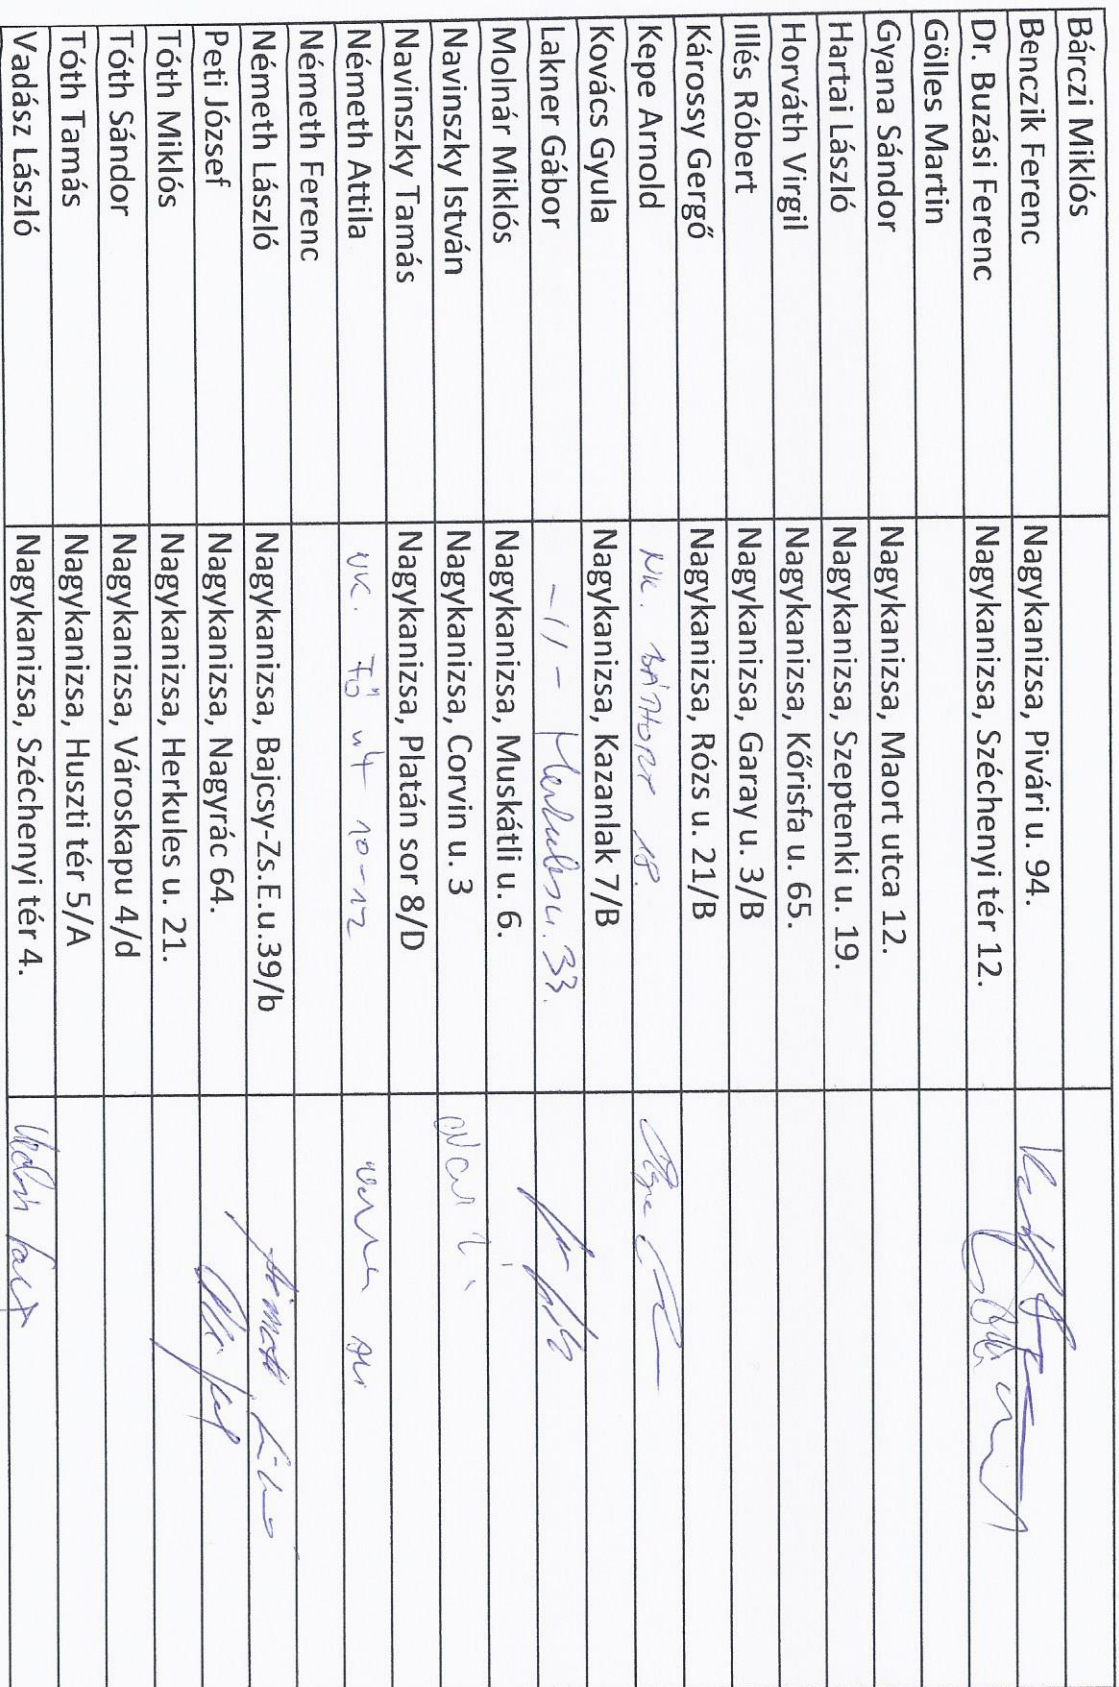 Bárczi Miklós
Benczik Ferenc Nagykanizsa, Pivári u. 94.
Dr. Buzási Ferenc Nagykanizsa, Széchenyi tér 12.
Gölles Martin
Gyana Sándor Nagykanizsa, Maort utca 12.
Hartai László Nagykanizsa, Szeptenki u. 19.
Horváth Virgil Nagykanizsa, Kőrisfa u. 65.
Illés Róbert Nagykanizsa, Garay u. 3/B
Károssy Gergő Nagykanizsa, Rózs u. 21/B
Kepe Arnold NK. BÁTHORY 18.
Kovács Gyula Nagykanizsa, Kazanlak 7/B
Lakner Gábor -11- Herkules u. 33.
Molnár Miklós Nagykanizsa, Muskátli u. 6.
Navinszky István Nagykanizsa, Corvin u. 3
Navinszky Tamás Nagykanizsa, Platán sor 8/D
Németh Attila NK. Fő út 10-12
Németh Ferenc
Németh László Nagykanizsa, Bajcsy-Zs.E.u.39/b
Peti József Nagykanizsa, Nagyrác 64.
Tóth Miklós Nagykanizsa, Herkules u. 21.
Tóth Sándor Nagykanizsa, Városkapu 4/d
Tóth Tamás Nagykanizsa, Huszti tér 5/A
Vadász László Nagykanizsa, Széchenyi tér 4.